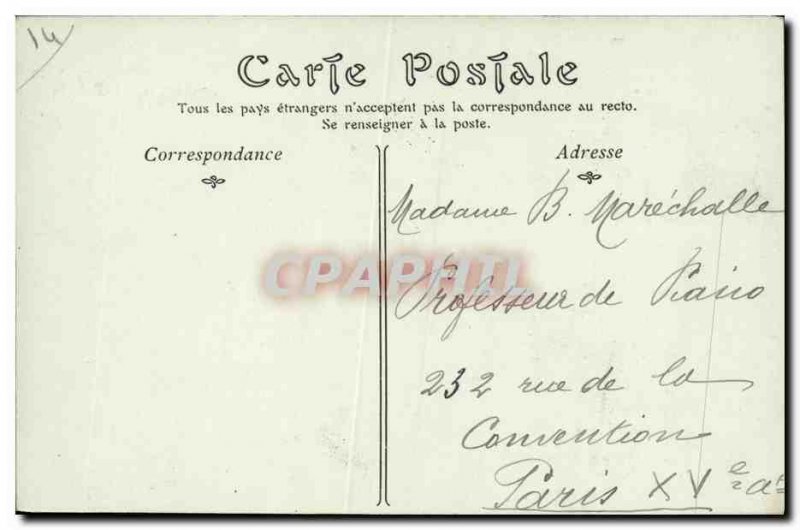 14
Carte Postale
Tous les pays étrangers n'acceptent pas la correspondance au recto.
Se renseigner à la poste.
Correspondance
Adresse
Madame B. Maréchalle
CPAPHIL
Professeur de Piano
232 rue de la
Convention
Paris XVe art